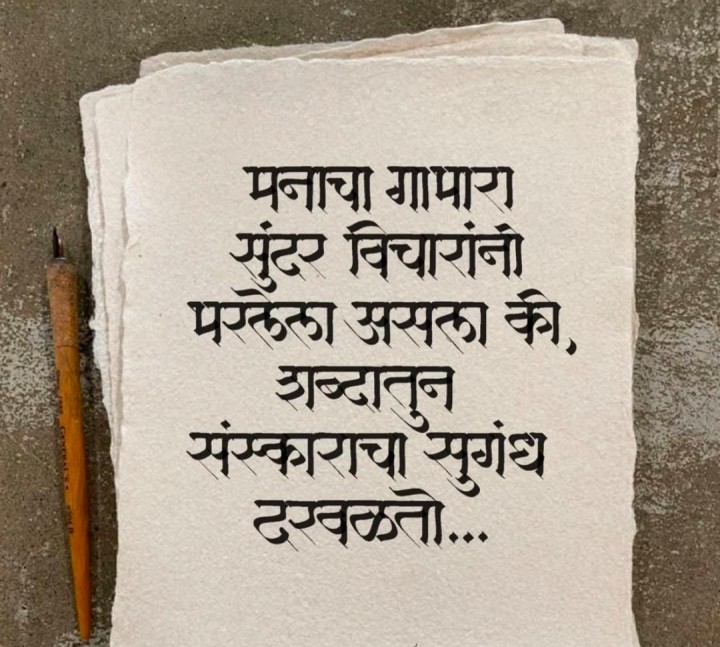 मनाचा गाभारा
सुंदर विचारांनी
भरलेला असला की,
शब्दातुन
संस्काराचा सुगंध
दरवळतो...